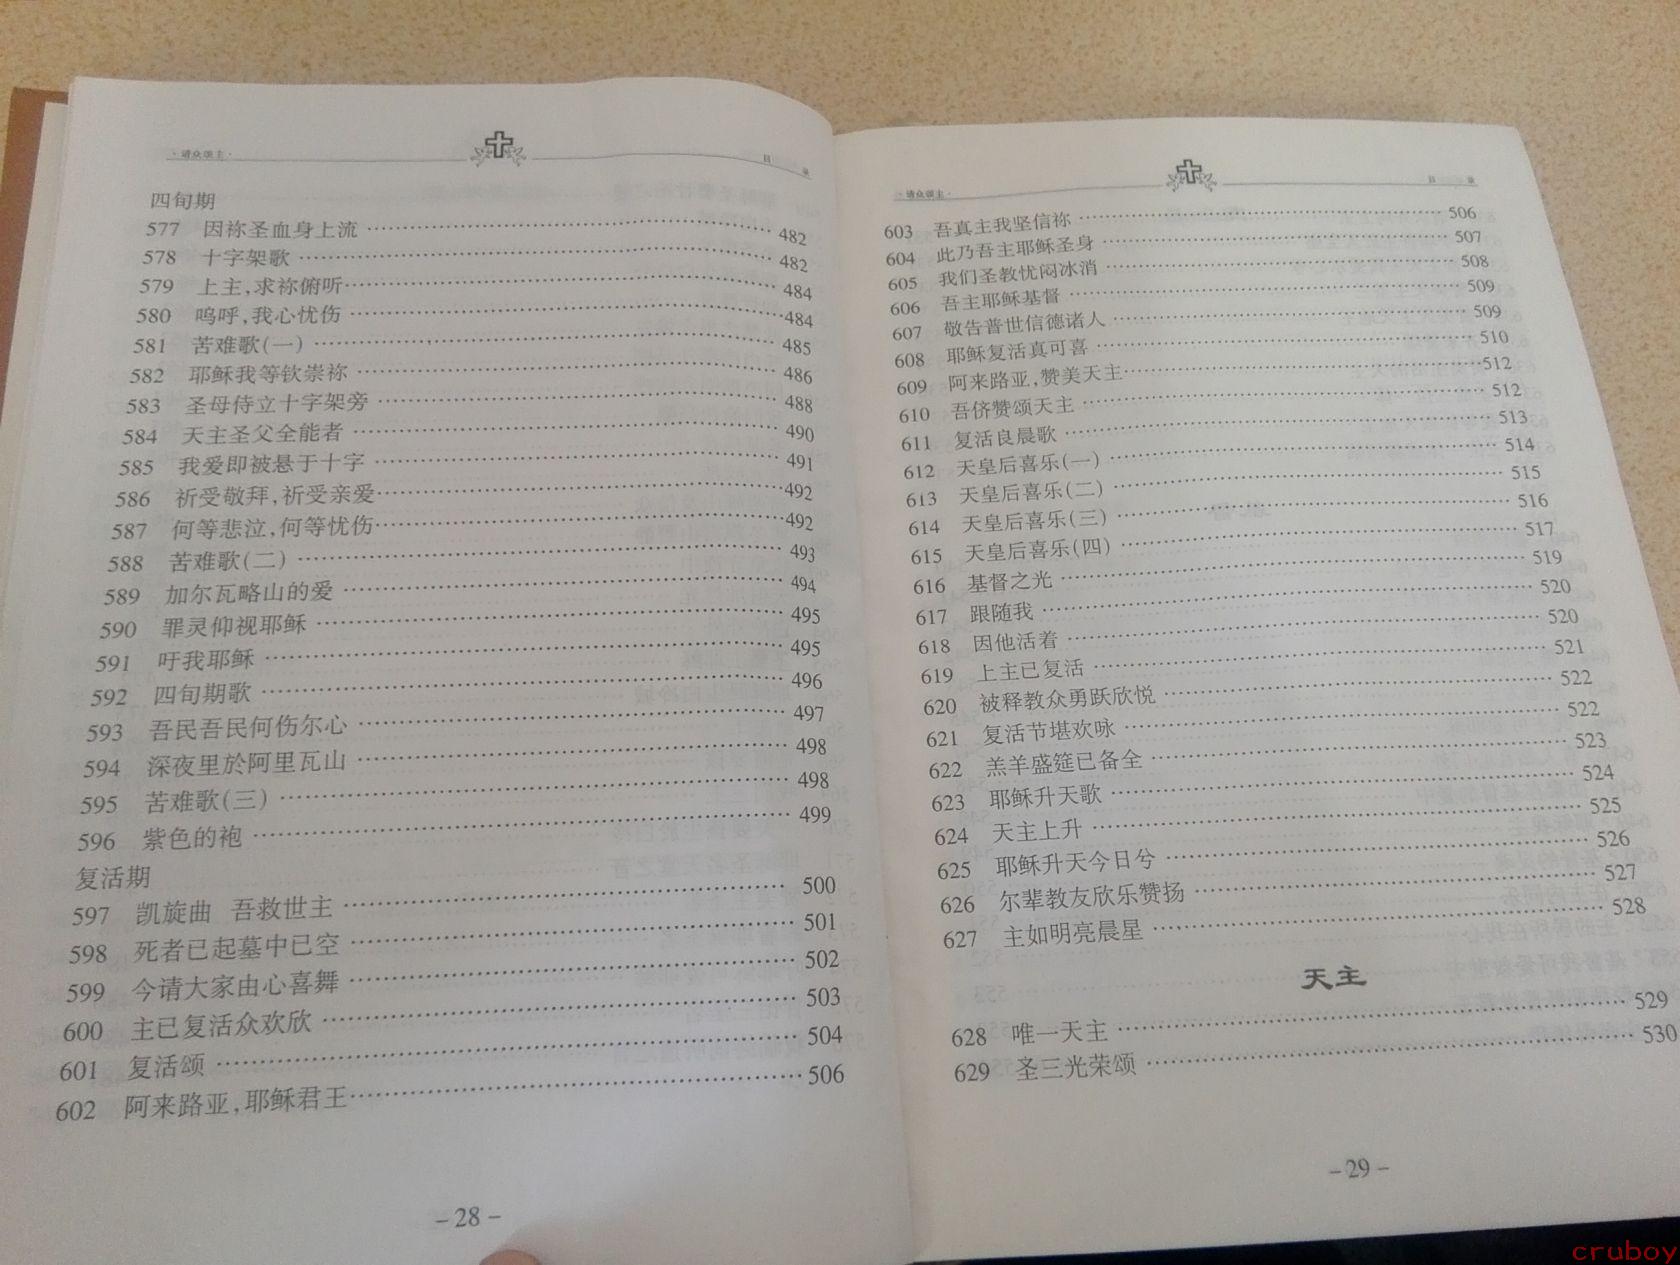 ·请众颂主· 目 录
四旬期
577 因祢圣血身上流 482
578 十字架歌 482
579 上主,求祢俯听 484
580 呜呼,我心忧伤 484
581 苦难歌(一) 485
582 耶稣我等钦崇祢 486
583 圣母侍立十字架旁 488
584 天主圣父全能者 490
585 我爱即被悬于十字 491
586 祈受敬拜,祈受亲爱 492
587 何等悲泣,何等忧伤 492
588 苦难歌(二) 493
589 加尔瓦略山的爱 494
590 罪灵仰视耶稣 495
591 吁我耶稣 495
592 四旬期歌 496
593 吾民吾民何伤尔心 497
594 深夜里於阿里瓦山 498
595 苦难歌(三) 498
596 紫色的袍 499
复活期
597 凯旋曲 吾救世主 500
598 死者已起墓中已空 501
599 今请大家由心喜舞 502
600 主已复活众欢欣 503
601 复活颂 504
602 阿来路亚,耶稣君王 506
–28–
·请众颂主· 目 录
603 吾真主我坚信祢 506
604 此乃吾主耶稣圣身 507
605 我们圣教忧闷冰消 508
606 吾主耶稣基督 509
607 敬告普世信德诸人 509
608 耶稣复活真可喜 510
609 阿来路亚,赞美天主 512
610 吾侪赞颂天主 512
611 复活良晨歌 513
612 天皇后喜乐(一) 514
613 天皇后喜乐(二) 515
614 天皇后喜乐(三) 516
615 天皇后喜乐(四) 517
616 基督之光 519
617 跟随我 520
618 因他活着 520
619 上主已复活 521
620 被释教众勇跃欣悦 522
621 复活节堪欢咏 522
622 羔羊盛筵已备全 523
623 耶稣升天歌 524
624 天主上升 525
625 耶稣升天今日兮 526
626 尔辈教友欣乐赞扬 527
627 主如明亮晨星 528
天主
628 唯一天主 529
629 圣三光荣颂 530
–29–
cruboy